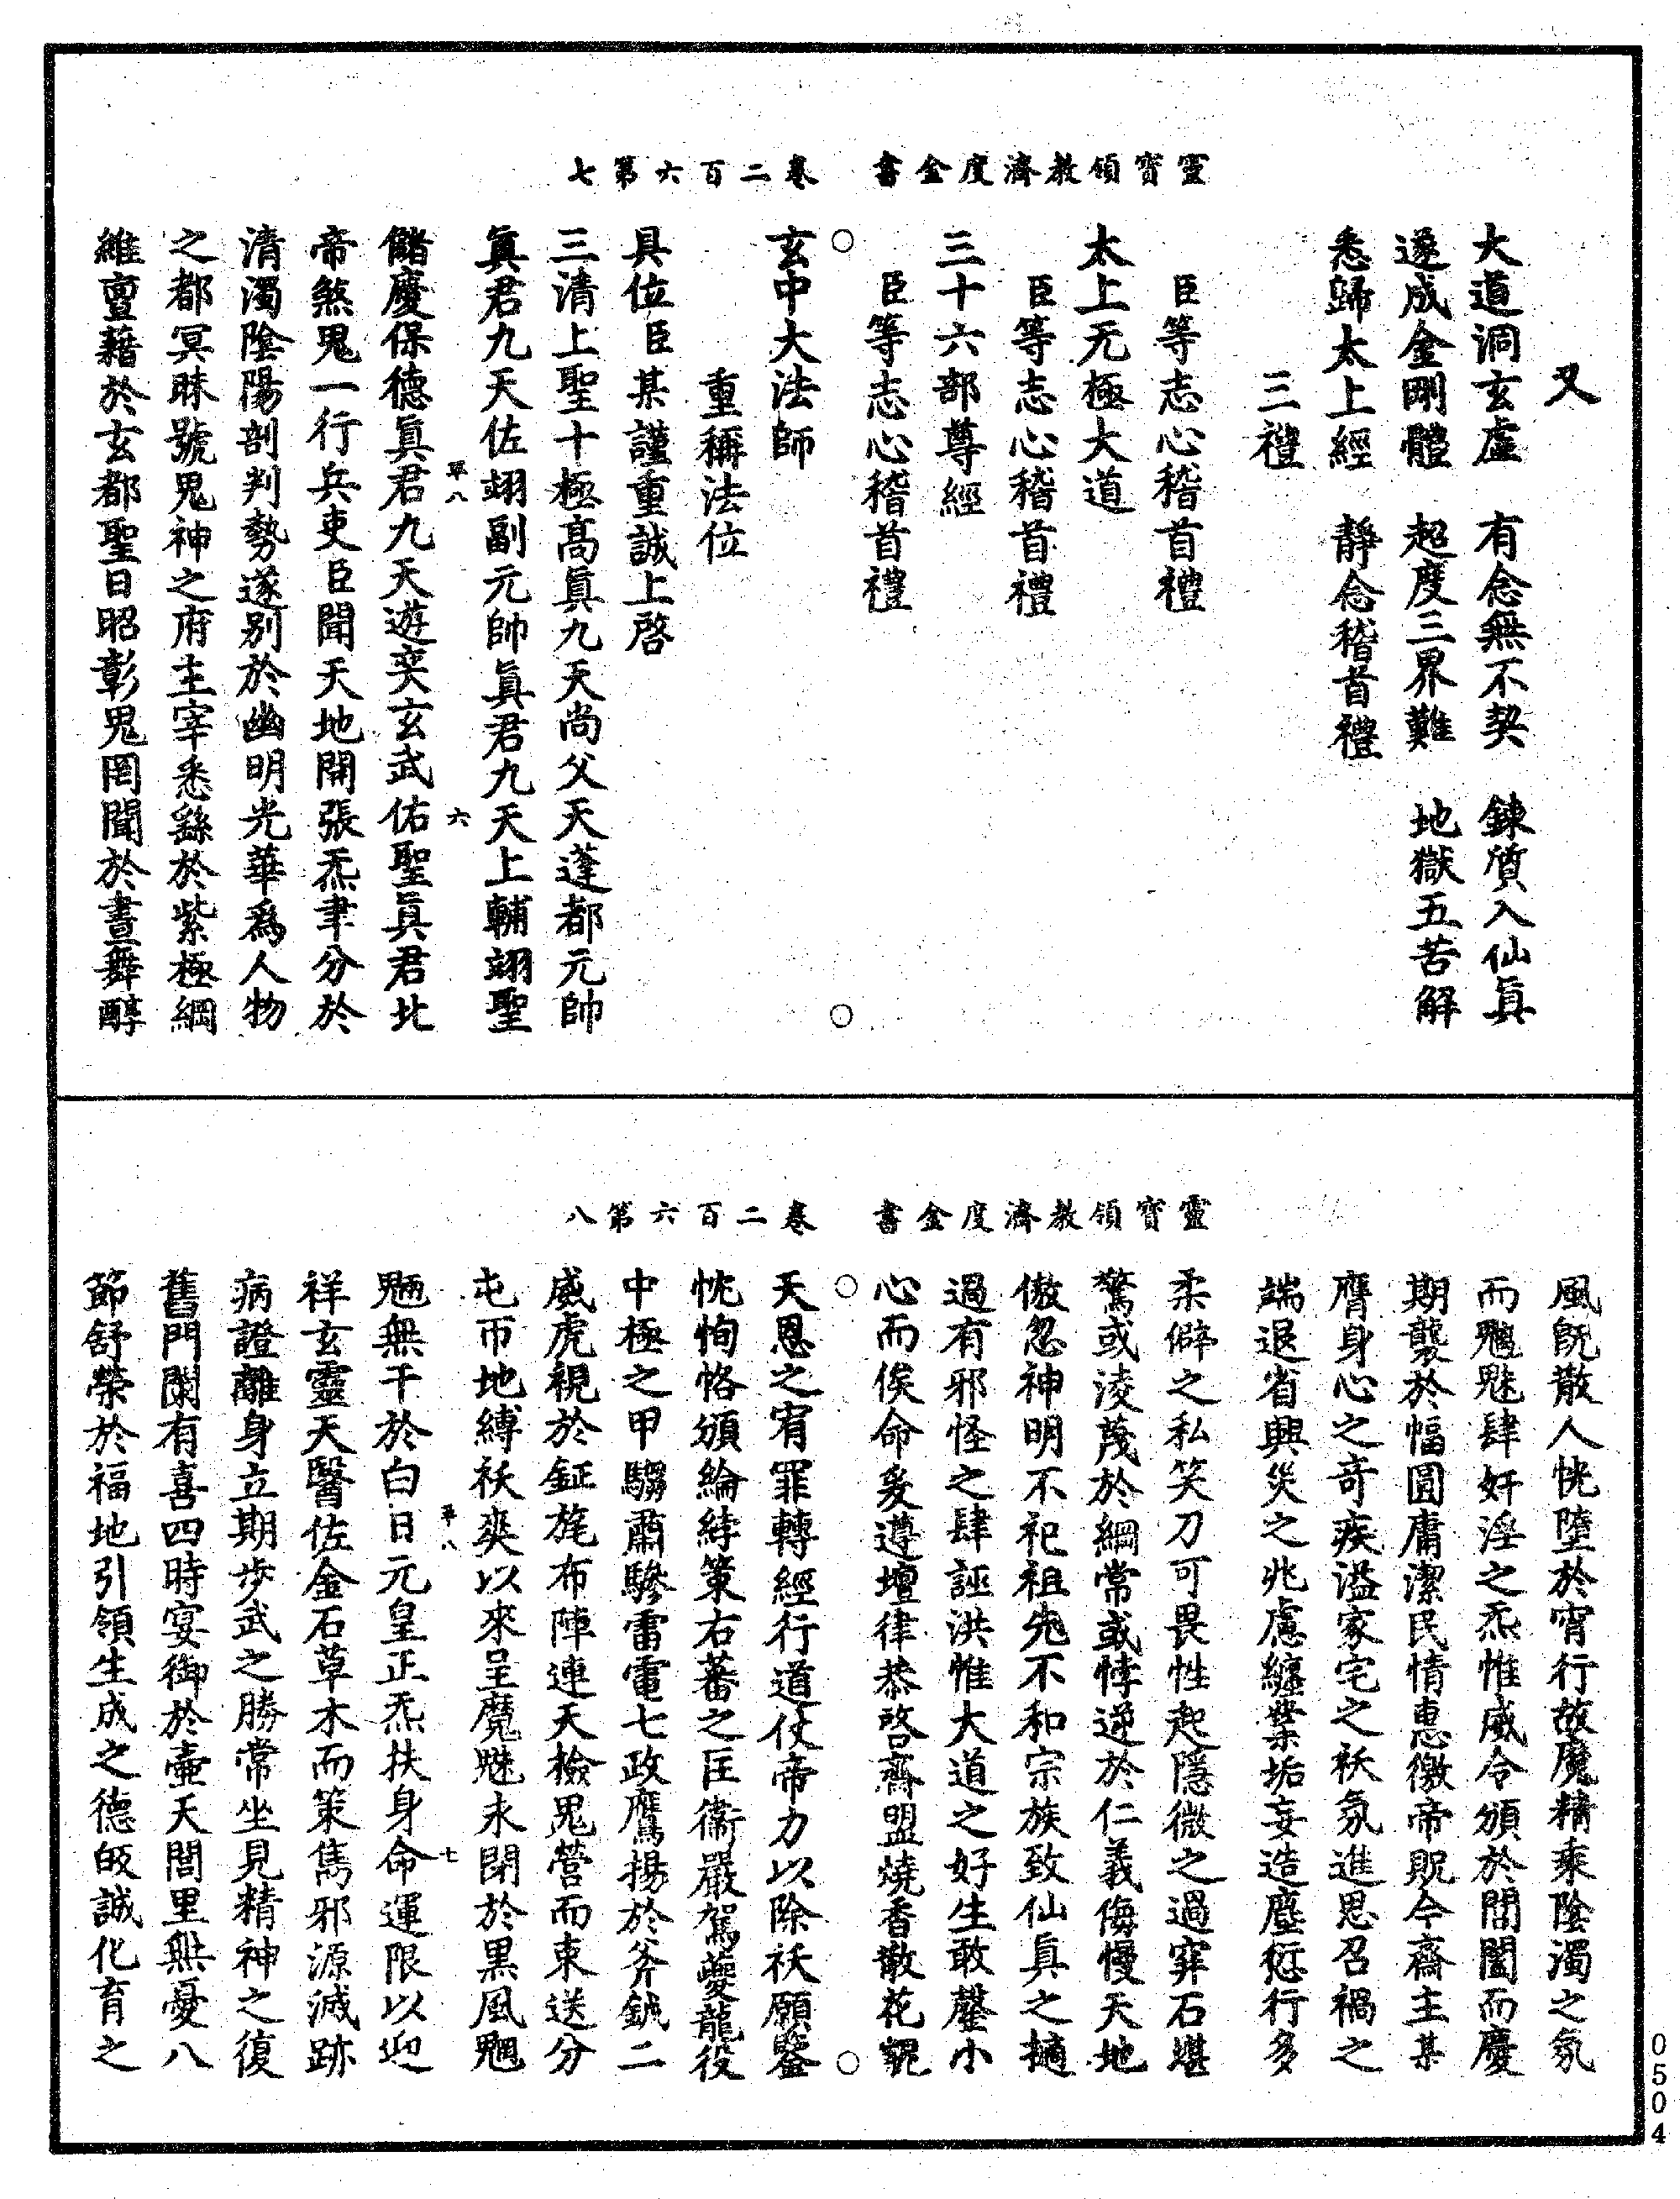 靈寶領教濟度金書　卷二百六第七
又
大道洞玄虛　有念無不契　鍊質入仙眞
遂成金剛體　超度三界難　地獄五苦解
悉歸太上經　靜念稽首禮
三禮
臣等志心稽首禮
太上无極大道
臣等志心稽首禮
三十六部尊經
臣等志心稽首禮
玄中大法師
重稱法位
具位臣某謹重誠上啓
三清上聖十極高眞九天尚父天蓬都元帥
眞君九天佐翊副元帥眞君九天上輔翊聖
儲慶保德眞君九天遊奕玄武佑聖眞君北
帝煞鬼一行兵吏臣聞天地開張炁聿分於
清濁陰陽剖判勢遂别於幽明光華爲人物
之都冥昧號鬼神之府主宰悉繇於紫極綱
維亶藉於玄都聖日昭彰鬼罔聞於晝舞醇
草八　六
靈寶領教濟度金書　卷二百六第八
風旣散人恍墮於宵行故魔精乘陰濁之氛
而魑魅肆奸淫之炁惟威令頒於閭闔而慶
期襲於幅圓庸潔民情惠徼帝貺今齋主某
膺身心之奇疾溢家宅之祅氛進思召禍之
端退省興災之兆慮纏業垢妄造塵愆行多
柔僻之私笑刀可畏性起隱微之過穽石堪
驚或淩蔑於綱常或悖逆於仁義侮慢天地
傲忽神明不祀祖先不和宗族致仙眞之擿
過有邪怪之肆誣洪惟大道之好生敢罄小
心而俟命爰遵壇律恭啓齋盟燒香散花覬
天恩之宥罪轉經行道仗帝力以除祅願鑒
忱恂恪頒綸綍策右蕃之匡衞嚴駕夔龍役
中極之甲騶肅驂雷電七政鷹揚於斧鉞二
威虎視於鉦旄布陣連天檢鬼營而束送分
屯帀地縛祅奭以來呈魔魅永閉於黑風魍
魎無干於白日元皇正炁扶身命運限以迎
祥玄靈天醫佐金石草木而策雋邪源滅跡
病證離身立期步武之勝常坐見精神之復
舊門闌有喜四時宴御於壷天閭里無憂八
節舒榮於福地引領生成之德皈誠化育之
草八　七
0504